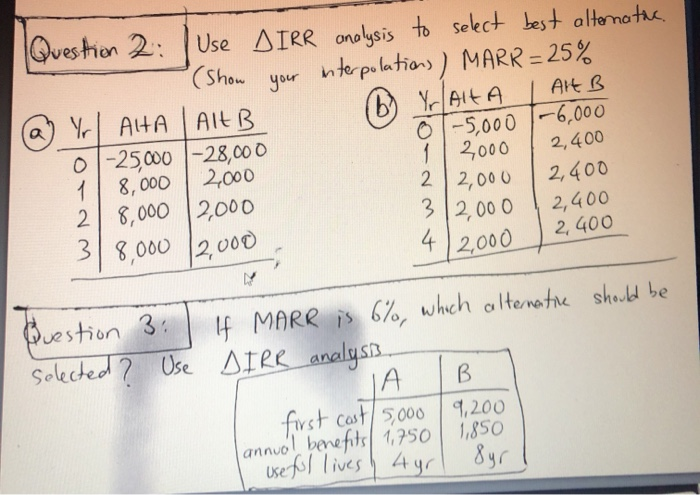 Question 2: Use ΔIRR analysis to select best alternative.
(Show your interpolations) MARR = 25%
(a) Yr Alt A Alt B
0 -25,000 -28,000
1 8,000 2,000
2 8,000 2,000
3 8,000 2,000
(b) Yr Alt A Alt B
0 -5,000 -6,000
1 2,000 2,400
2 2,000 2,400
3 2,000 2,400
4 2,000 2,400
Question 3: If MARR is 6%, which alternative should be
Selected? Use ΔIRR analysis.
A B
first cost 5,000 9,200
annual benefits 1,750 1,850
useful lives 4yr 8yr